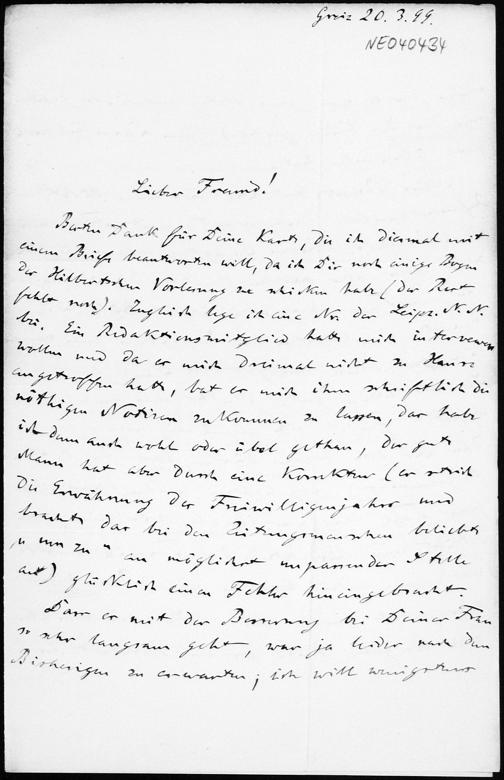 Greiz 20. 3. 99.
NE040434
Lieber Freund!
Besten Dank für Deine Karte, die ich diesmal mit
einem Briefe beantworten will, da ich Dir noch einige Bogen
der Hilbertschen Vorlesung zu schicken habe (der Rest
fehlt noch). Zugleich lege ich eine No. der Leipz. N. N.
bei. Ein Redaktionsmitglied hatte mich interviewen
wollen und da er mich dreimal nicht zu Hause
angetroffen hatte, bat er mich ihm schriftlich die
nöthigen Notizen zukommen zu lassen, das habe
ich denn auch wohl oder übel gethan, der gute
Mann hat aber durch eine Korrektur (er strich
die Erwähnung des Freiwilligenjahres und
brachte das bei den Zeitungsmenschen beliebte
„um zu“ an möglichst unpassender Stelle
an) glücklich einen Fehler hineingebracht.
Dass er mit der Besserung bei Deiner Frau
so sehr langsam geht, war ja leider nach dem
Bisherigen zu erwarten; ich will wenigstens